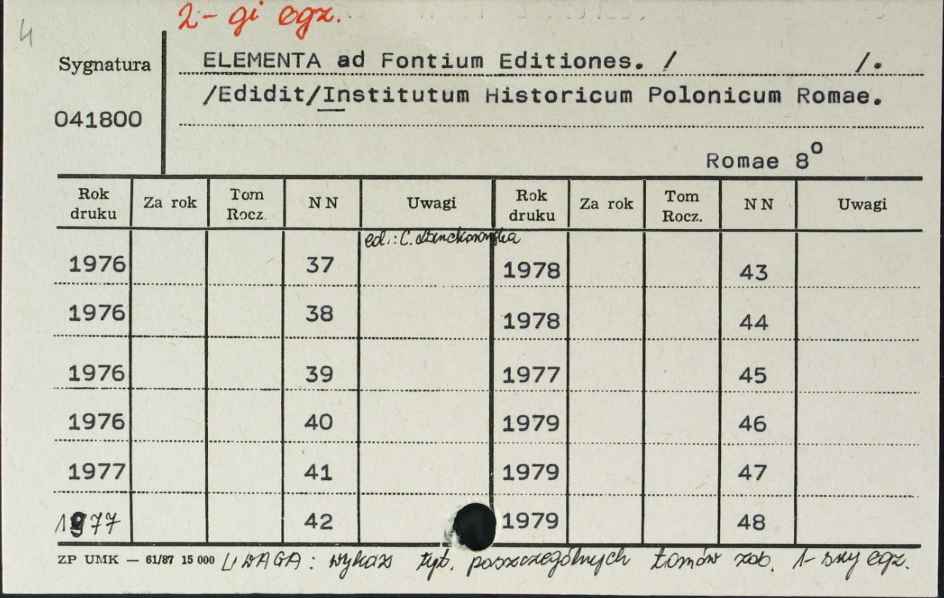 4
2-gi egz.
Sygnatura
041800
ELEMENTA ad Fontium Editiones. / /.
/Edidit/Institutum Historicum Polonicum Romae.
Romae 8o
Rok druku Za rok Tom Rocz. NN Uwagi Rok druku Za rok Tom Rocz. NN Uwagi
ed.: C.
1976 37 1978 43
1976 38 1978 44
1976 39 1977 45
1976 40 1979 46
1977 41 1979 47
1977 42 1979 48
ZP UMK — 61/87 15 000 UWAGA: wykaz tyt. poszczególnych tomów zob. 1-szy egz.